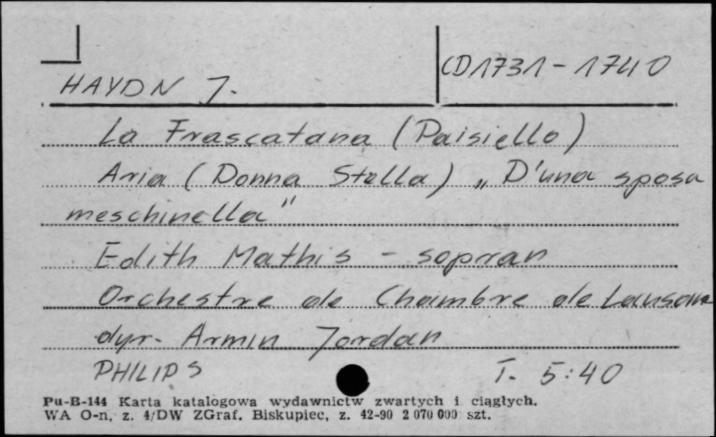 HAYDN J.
CD1731-1740
La Frascatana (Paisiello)
Aria (Donna Stella) „D'una sposa
meschinella"
Edith Mathis - sopran
Orchestre de Chambre de Lausanne
dyr. Armin Jordan
PHILIPS T. 5:40
Pu-B-144 Karta katalogowa wydawnictw zwartych i ciągłych.
WA O-n, z. 4/DW ZGraf. Biskupiec, z. 42-90 2 070 000 szt.